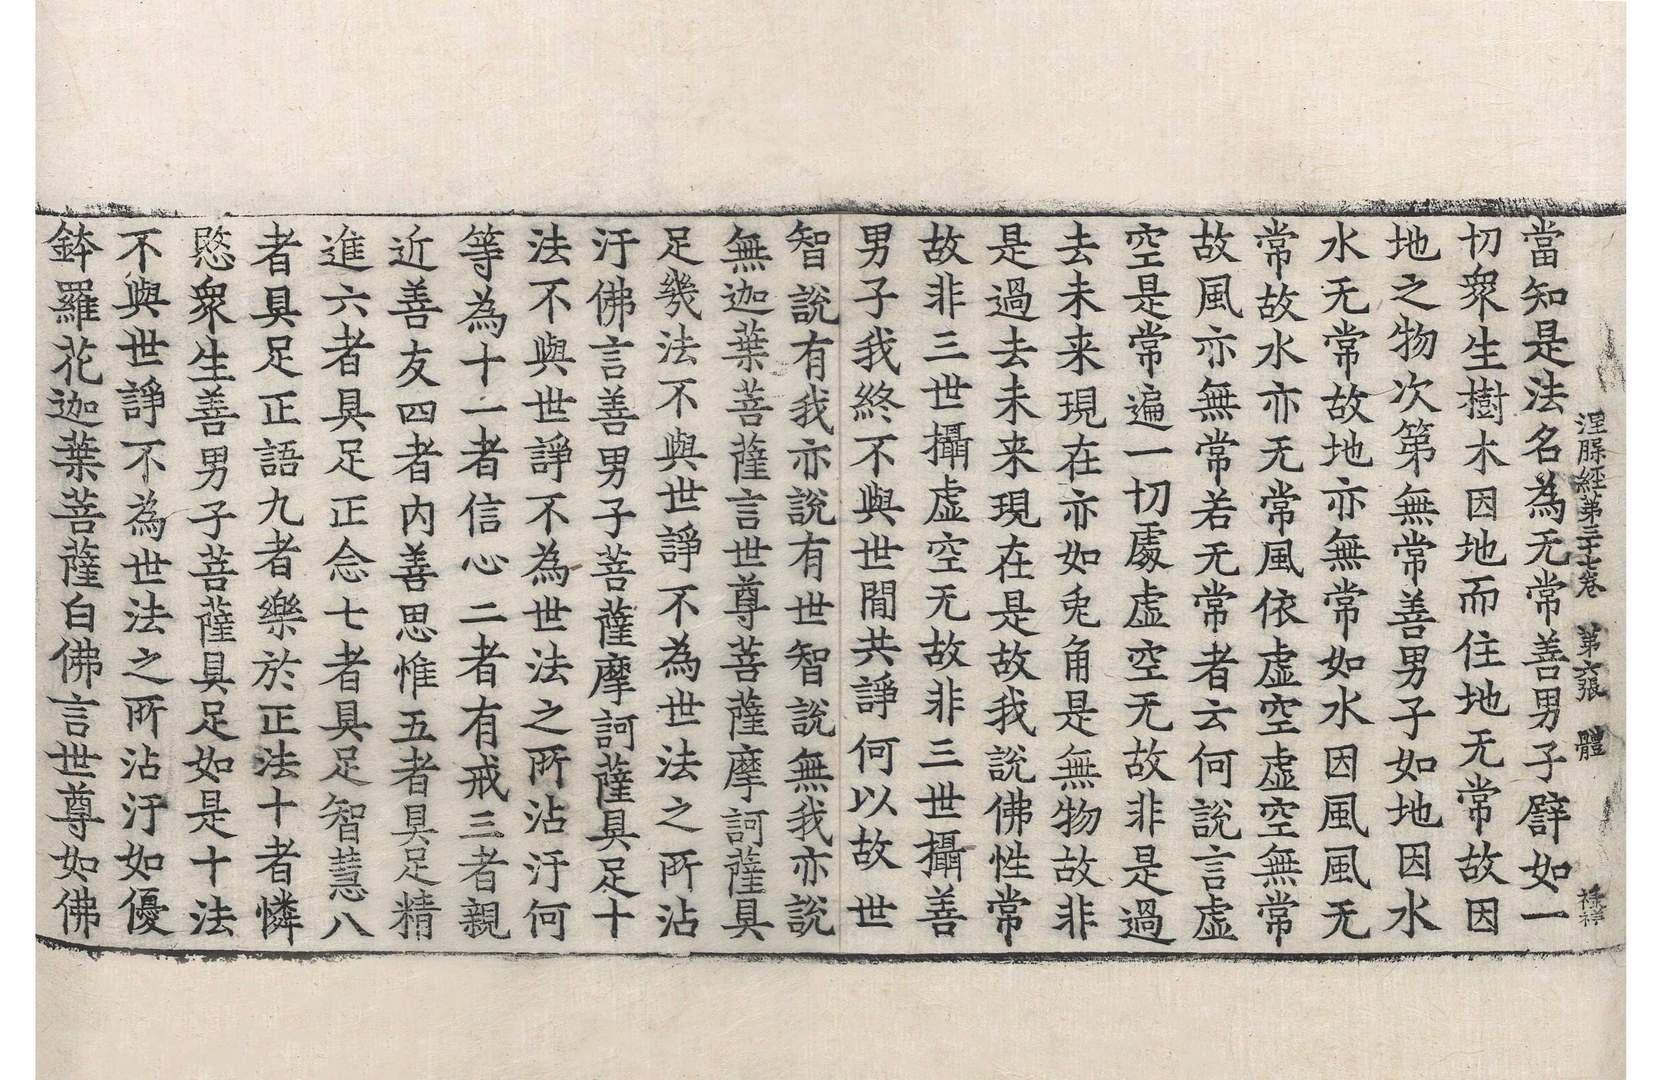 涅槃經第三十七卷　第六張　體
當知是法名為无常善男子辟如一
切衆生樹木因地而住地无常故因
地之物次第無常善男子如地因水
水无常故地亦無常如水因風風无
常故水亦无常風依虛空虛空無常
故風亦無常若无常者云何說言虛
空是常遍一切處虛空无故非是過
去未来現在亦如兔角是無物故非
是過去未来現在是故我說佛性常
故非三世攝虛空无故非三世攝善
男子我終不與世間共諍何以故世
智說有我亦說有世智說無我亦說
無迦葉菩薩言世尊菩薩摩訶薩具
足幾法不與世諍不為世法之所沾
汙佛言善男子菩薩摩訶薩具足十
法不與世諍不為世法之所沾汙何
等為十一者信心二者有戒三者親
近善友四者內善思惟五者具足精
進六者具足正念七者具足智慧八
者具足正語九者樂於正法十者憐
愍衆生善男子菩薩具足如是十法
不與世諍不為世法之所沾汙如優
鉢羅花迦葉菩薩白佛言世尊如佛